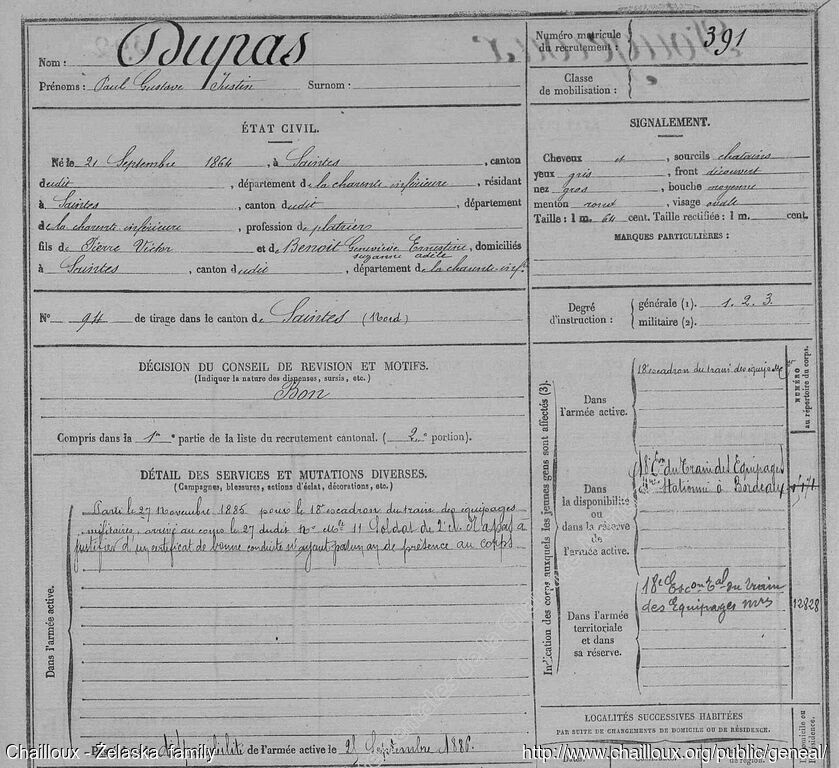 Nom : Dupas
Prénoms : Paul Gustave Justin Surnom :
Numéro matricule du recrutement : 391
Classe de mobilisation :
ÉTAT CIVIL.
Né le 21 Septembre 1864, à Saintes, canton
dudit, département de la charente inférieure, résidant
à Saintes, canton dudit, département
de la charente inférieure, profession de platrier
fils de Pierre Victor et de Benoit Geneviève Ernestine, domiciliés
suzanne adèle
à Saintes, canton dudit, département de la charente-infre
SIGNALEMENT.
Cheveux et sourcils chatains
yeux gris, front découvert
nez gros, bouche moyenne
menton rond, visage ovale
Taille : 1 m. 64 cent. Taille rectifiée : 1 m. cent.
MARQUES PARTICULIÈRES :
No 94 de tirage dans le canton de Saintes (Nord)
Degré d'instruction : générale (1). 1. 2. 3.
militaire (2).
DÉCISION DU CONSEIL DE REVISION ET MOTIFS.
(Indiquer la nature des dispenses, sursis, etc.)
Bon
Compris dans la 1re partie de la liste du recrutement cantonal. (2e portion).
DÉTAIL DES SERVICES ET MUTATIONS DIVERSES.
(Campagnes, blessures, actions d'éclat, décorations, etc.)
Dans l'armée active.
Parti le 27 Novembre 1885 pour le 18e escadron du train des équipages
militaires, arrivé au corps le 27 dudit No Mle 11 Soldat de 2e cl. N'a pas a
justifier d'un certificat de bonne conduite n'ayant pas un an de présence au corps
disponibilité de l'armée active le 21 Septembre 1886.
Indication des corps auxquels les jeunes gens sont affectés (3).
NUMÉRO au répertoire du corps.
Dans l'armée active.
18e escadron du train des équip.
Dans la disponibilité ou dans la réserve de l'armée active.
18e Eon du Train des Equipages
Mres stationné à Bordeaux
Dans l'armée territoriale et dans sa réserve.
18e Escon Tal du Train
des Equipages mres
12828
LOCALITÉS SUCCESSIVES HABITÉES
PAR SUITE DE CHANGEMENTS DE DOMICILE OU DE RÉSIDENCE.
Chailloux - Želaska family
http://www.chailloux.org/public/geneal/